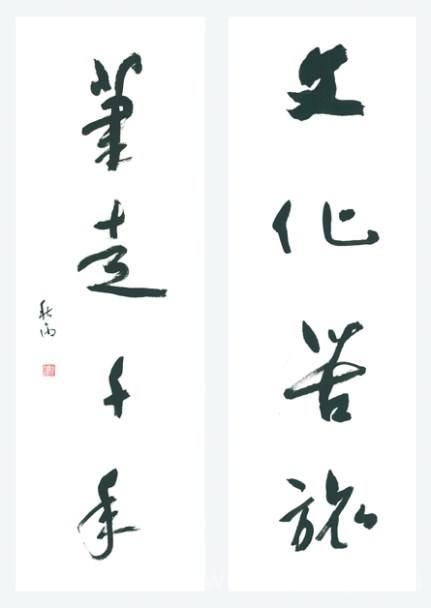 文化苦旅
筆走千年
秋雨